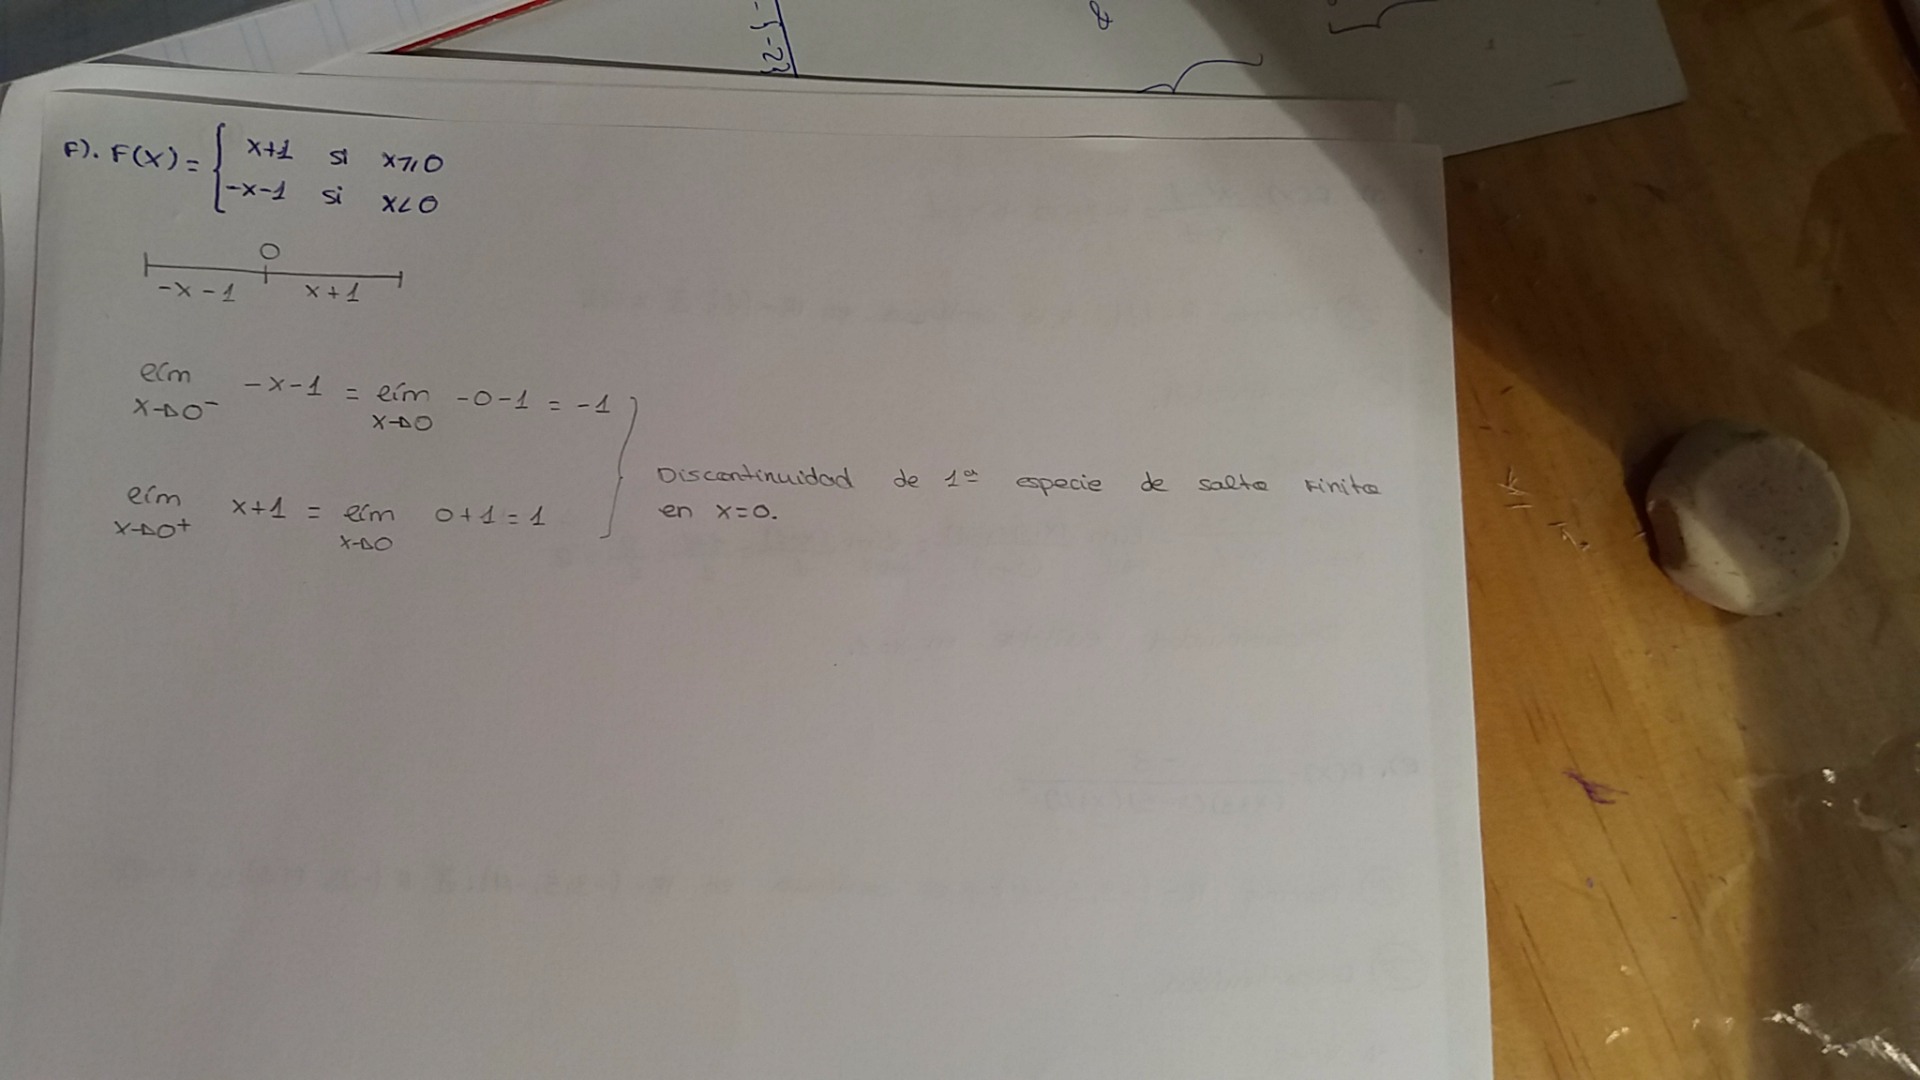 -{-2}
F). F(x) = { x+1 si x⩾0
-x-1 si x<0
0
-x-1 x+1
lím x→0⁻ -x-1 = lím x→0 -0-1 = -1
lím x→0⁺ x+1 = lím x→0 0+1 = 1
Discontinuidad de 1ª especie de salto finito
en x=0.